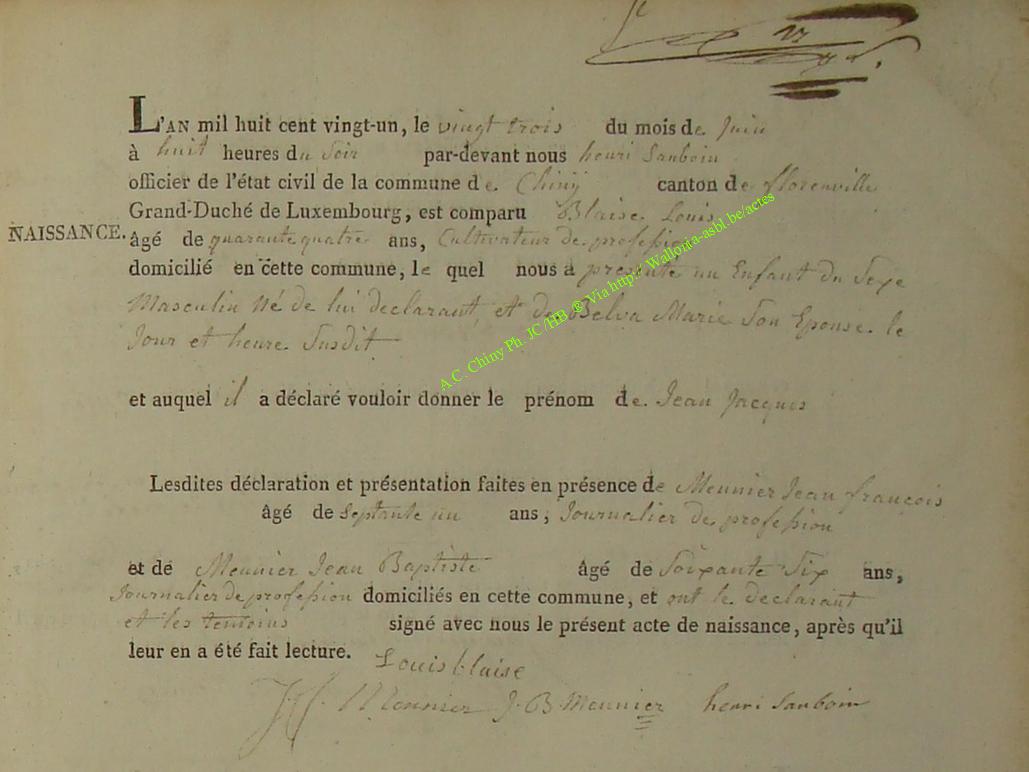 L'AN mil huit cent vingt-un, le vingt trois du mois de Juin
à huit heures du Soir par-devant nous henri Sanboin
officier de l'état civil de la commune de Chiny canton de florenville
Grand-Duché de Luxembourg, est comparu Blaise Louis
NAISSANCE. âgé de quarante quatre ans, Cultivateur de profession
domicilié en cette commune, le quel nous a presenté un Enfant du Sexe
Masculin Né de lui declarant, et de Belva Marie Son Epouse le
Jour et heure Susdit
A.C. Chiny Ph. JC /HB. © Via http:// Wallonia-asbl.be/actes
et auquel il a déclaré vouloir donner le prénom de Jean Jacques
Lesdites déclaration et présentation faites en présence de Meunier Jean françois
âgé de Septante un ans, Journalier de profession
et de Meunier Jean Baptiste âgé de Soixante Six ans,
Journalier de profession domiciliés en cette commune, et ont le declarant
et les temoins signé avec nous le présent acte de naissance, après qu'il
leur en a été fait lecture.
Louis blaise
Meunier J.B Meunier henri Sanboin